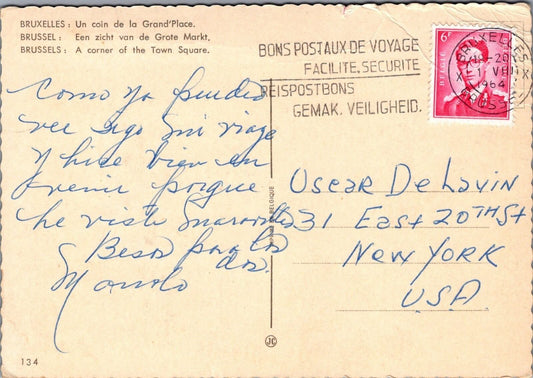 BRUXELLES : Un coin de la Grand'Place.
BRUSSEL : Een zicht van de Grote Markt,
BRUSSELS : A corner of the Town Square.
BONS POSTAUX DE VOYAGE
FACILITE, SECURITE
REISPOSTBONS
GEMAK. VEILIGHEID.
6F
BELGIE
BRUXELLES
1964
Como ya puedes
ver sigo mi viaje
y hice bien en
venir porque
he visto maravillas
Besos para los
dos.
Manolo
Oscar De Lavin
31 East 20TH St
New York
U.S.A.
JC
134